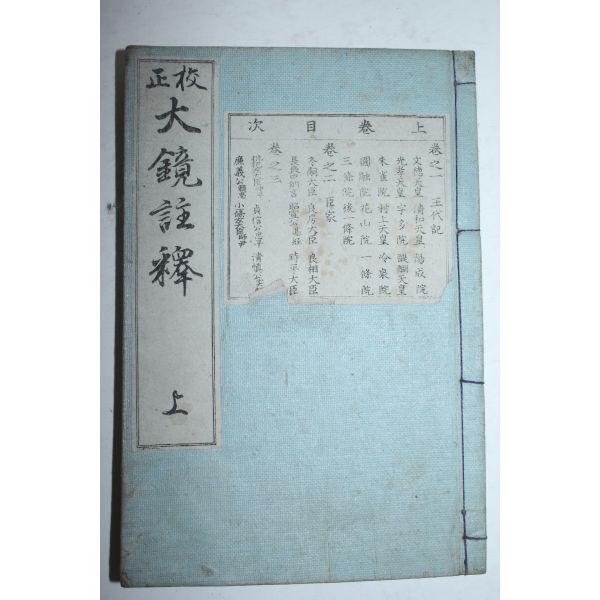 校正
大鏡註釋
上
上卷目次
卷之一 王代記
文德天皇 淸和天皇 陽成院
光孝天皇 宇多院 醍醐天皇
朱雀院 村上天皇 冷泉院
圓融院 花山院 一條院
三條院 後一條院
卷之二 臣家
冬嗣大臣 良房大臣 良相大臣
長良中納言 昭宣公基經 時平大臣
卷之三
貞信公忠平 淸愼公
廉義公賴忠